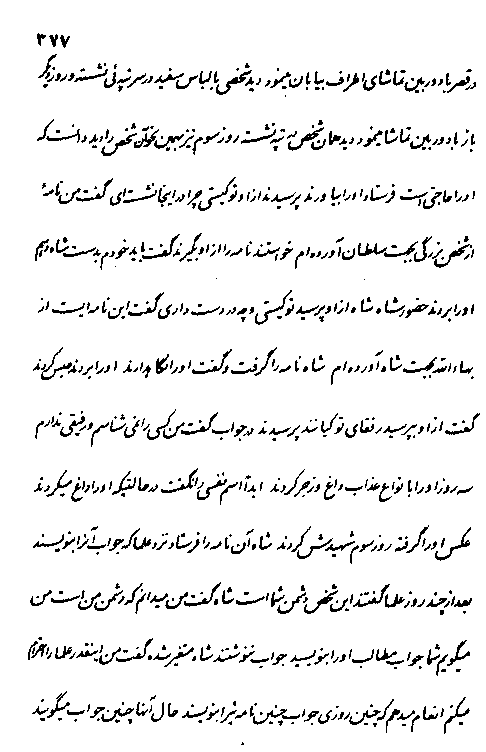 ۳۷۷
در قصر با دوربین تماشای اطراف بیابان مینمود دید شخصی با لباس سفید در سر تپه‌ئی نشسته و روز دیگر
باز با دوربین تماشا مینمود دید همان شخص سر تپه نشسته روز سوم نیز بهمین نحو آن شخص را دید دانست که
او را حاجتی است فرستاد او را بیاورند پرسیدند از او تو کیستی چرا در اینجا نشسته‌ای گفت من نامهٔ
از شخص بزرگی بجهت سلطان آورده‌ام خواستند نامه را از او بگیرند گفت باید خودم بدست شاه بدهم
او را بردند حضور شاه شاه از او پرسید تو کیستی و چه در دست داری گفت این نامه ایست از
بهاءالله بجهت شاه آورده‌ام شاه نامه را گرفت و گفت او را نگاه دارند او را بردند حبس کردند
گفت از او بپرسید رفقای تو کیانند پرسیدند در جواب گفت من کسی را نمی شناسم و رفیقی ندارم
سه روز او را با نواع عذاب داغ و زجر کردند ابداً اسم نفسی را نگفت در حالتیکه او را داغ میکردند
عکس او را گرفته روز سوم شهیدش کردند شاه آن نامه را فرستاد نزد علما که جواب آنرا بنویسند
بعد از چند روز علما گفتند این شخص دشمن شما است شاه گفت من میدانم که دشمن من است من
میگویم شما جواب مطالب او را بنویسید جواب ننوشتند شاه متغیر شده گفت من اینقدر علما را احترام
میکنم انعام میدهم که چنین روزی جواب چنین نامه‌ئی را بنویسند حال آنها چنین جواب میگویند